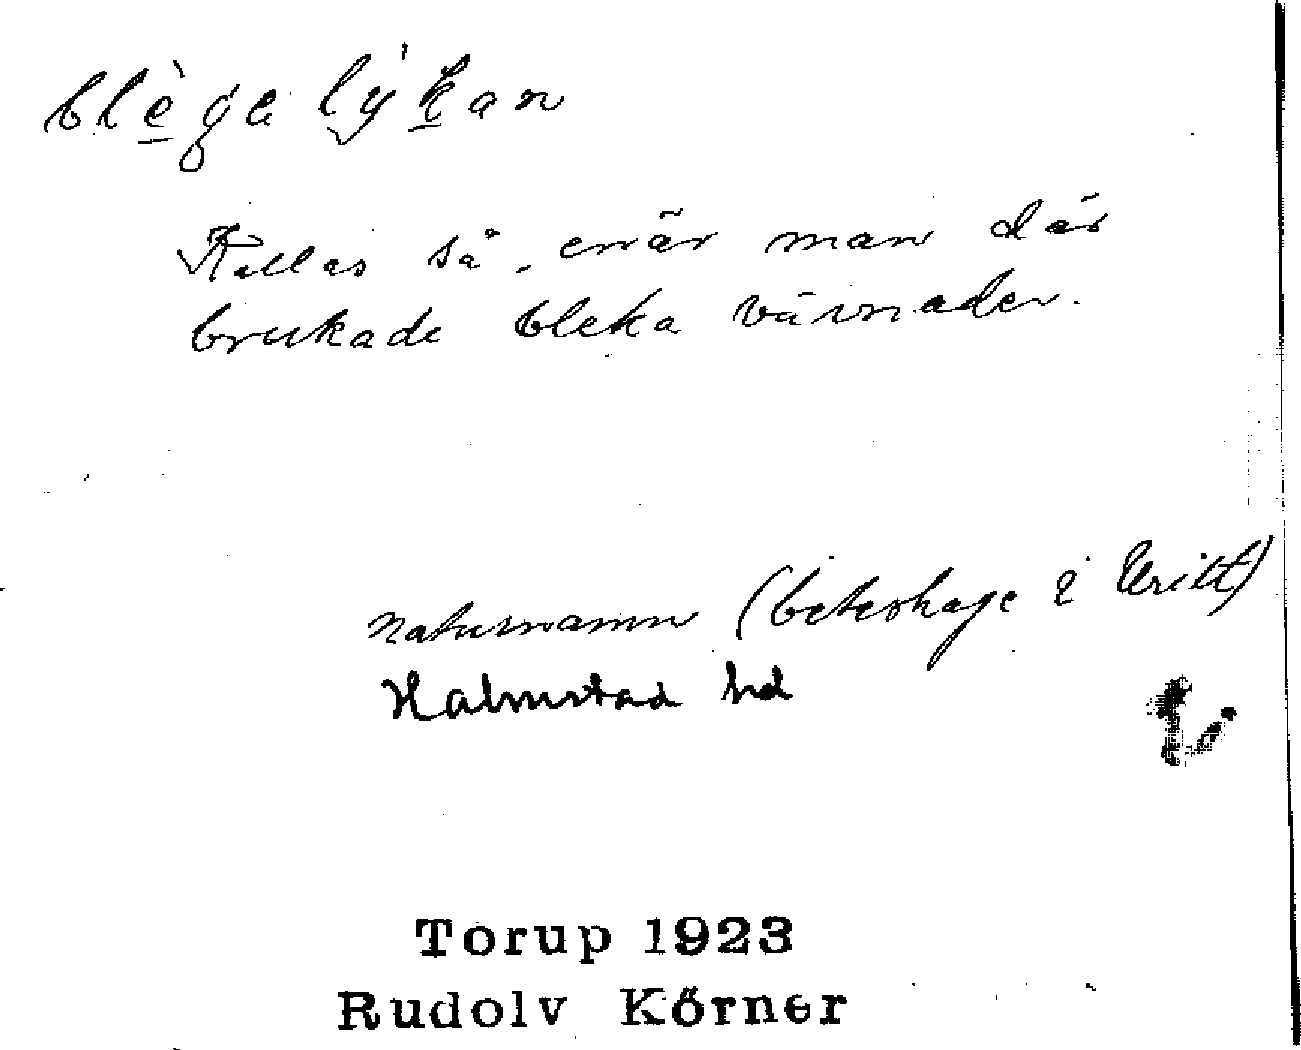 blège lýkan
Kallas så, enär man där
brukade bleka vävnader.
naturnamn (beteshage i
Halmstad hd
Torup 1923
Rudolv Körner